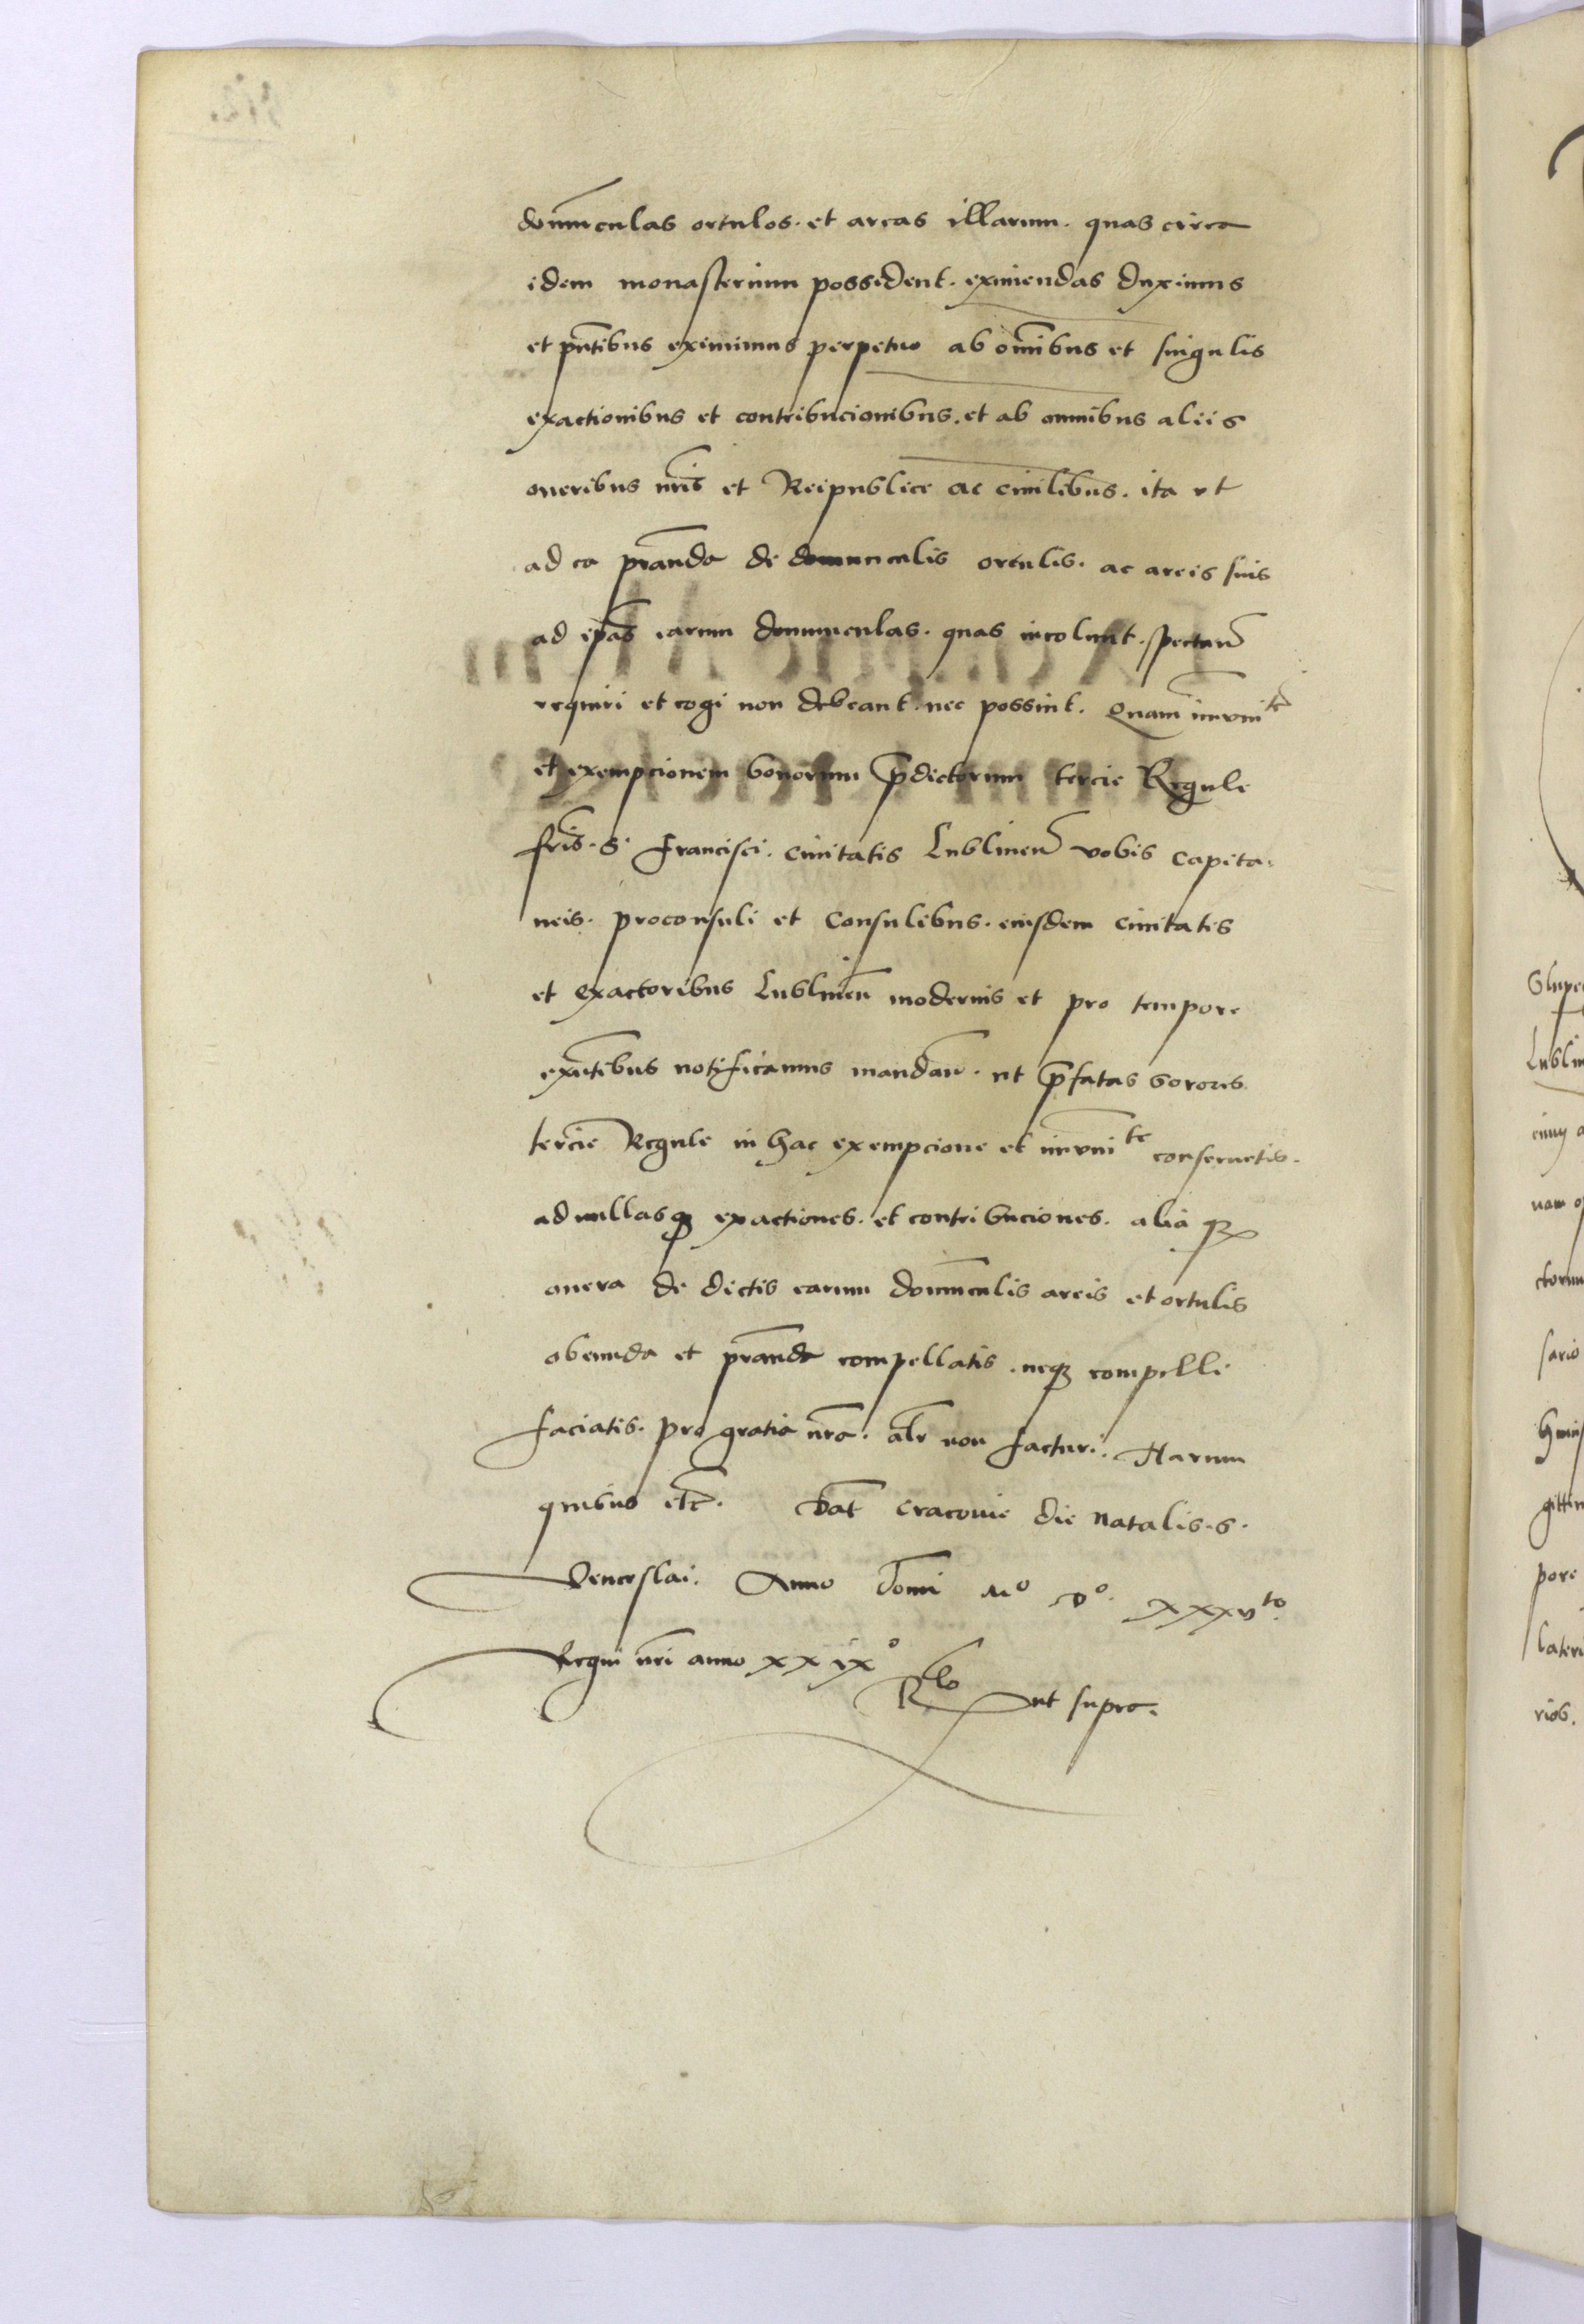 domunculas ortulos. et areas illarum. quas circa
idem monasterium possident. eximendas duximus
et pntibus eximimus perpetuo ab omibus et singulis
exactionibus et contribucionibus. et ab omnibus aliis
oneribus nris et Reipublice ac civilibus. ita ut
ad ea prandа de domunculis ortulis. ac areis suis
ad ipas earum domunculas. quas incolunt. spectan
requiri et cogi non debeant. nec possint. Quam immunitᵉ
et exempcionem bonorum pdictorum tercie Regule
fris. S. Francisci. civitatis Lublinen vobis Capita
neis. proconsuli et Consulibus. eiusdem civitatis
et exactoribus Lublinen modernis et pro tempore
exntibus notificamus mandan. ut pfatas Sorores
tercie Regule in hac exempcione et immuniᵗᵉ conservetis.
ad nullasq exactiones. et contribuciones. alia q
onera de dictis earum domunculis areis et ortulis
obeunda et pranda compellatis. neq compelli
faciatis. pro gratia nra. alr non facturi. Harum
quibus etc. Dat Cracovie die Natalis. S.
Venceslai. Anno Domi Mᵒ Dᵒ. XXXVᵗᵒ.
Regni nri anno XXIXᵒ
Rlo ut supra.